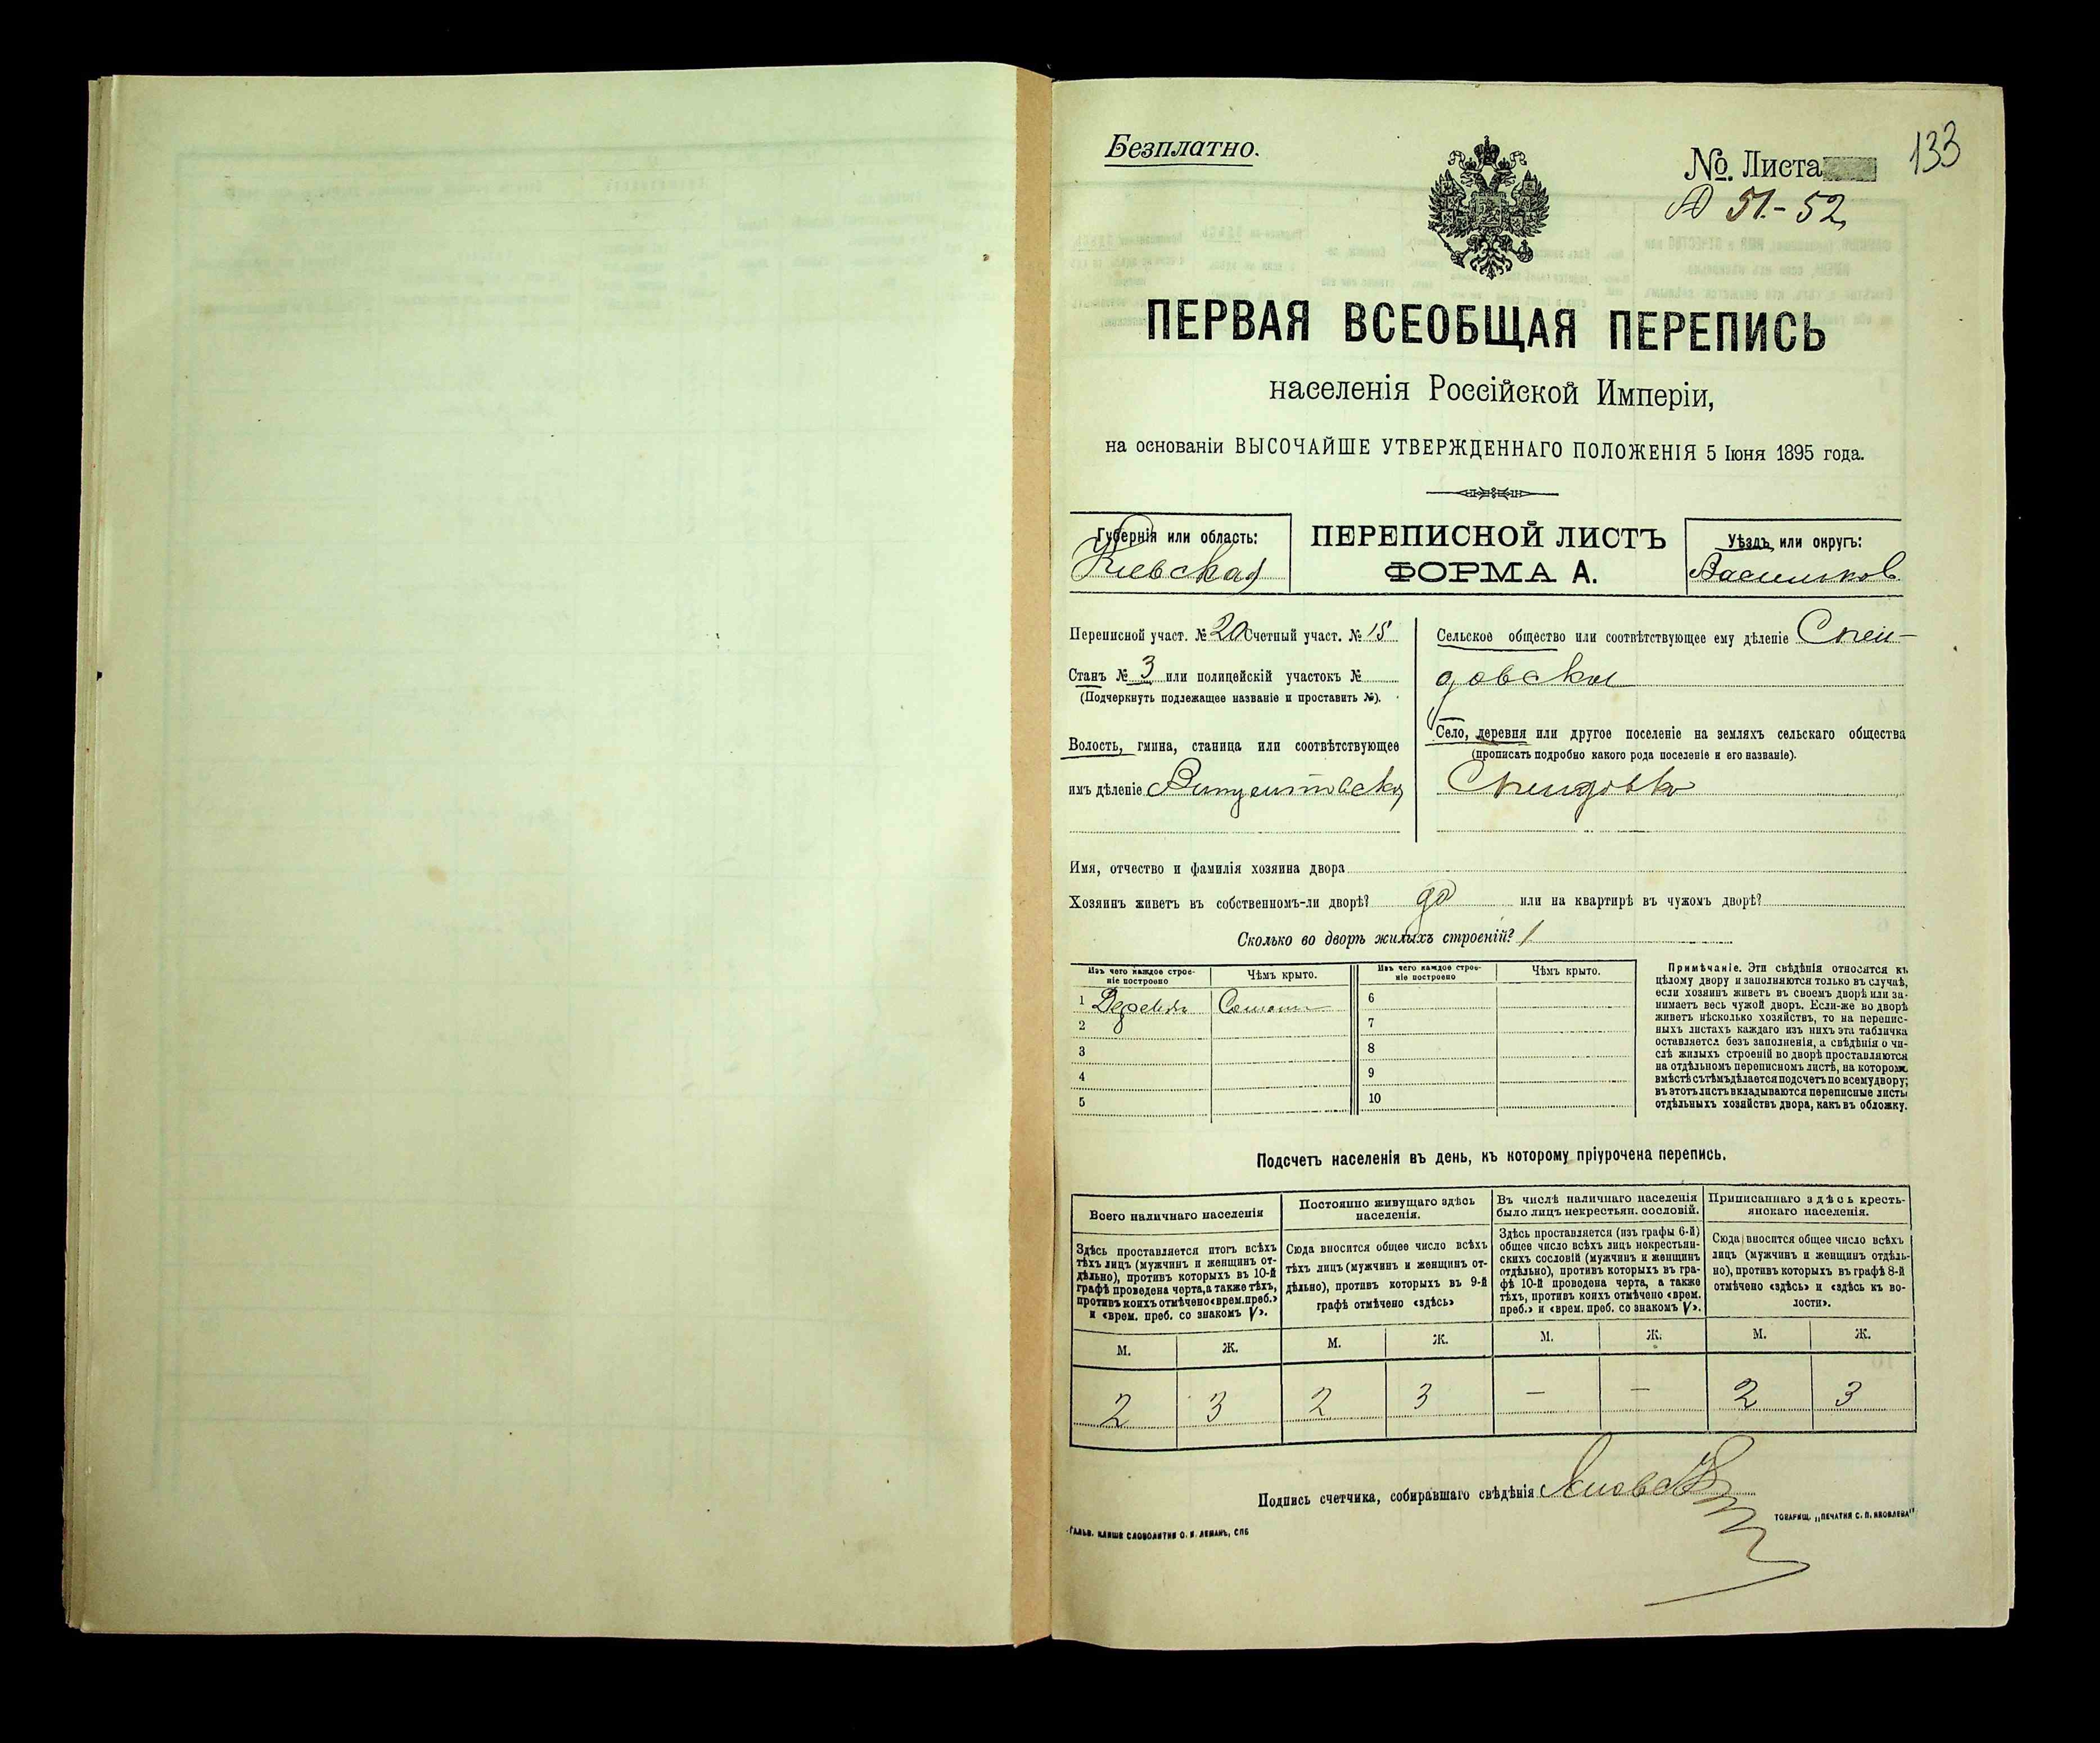 Безплатно.
№. Листа
133
А 51.-52
ПЕРВАЯ ВСЕОБЩАЯ ПЕРЕПИСЬ
населенія Россійской Имперіи,
на основаніи ВЫСОЧАЙШЕ УТВЕРЖДЕННАГО ПОЛОЖЕНІЯ 5 Іюня 1895 года.
Губернія или область:
Кіевская
ПЕРЕПИСНОЙ ЛИСТЪ
ФОРМА А.
Уѣздъ или округъ:
Васильков
Переписной участ. № 20 Счетный участ. № 15
Станъ № 3 или полицейскій участокъ №
(Подчеркнуть подлежащее названіе и проставить №).
Волость, гмина, станица или соотвѣтствующее
имъ дѣленіе
Сельское общество или соотвѣтствующее ему дѣленіе Спен-
довское
Село, деревня или другое поселеніе на земляхъ сельскаго общества
(прописать подробно какого рода поселеніе и его названіе).
Спендовка
Имя, отчество и фамилія хозяина двора
Хозяинъ живетъ въ собственномъ-ли дворѣ? да или на квартирѣ въ чужомъ дворѣ?
Сколько во дворѣ жилыхъ строеній? 1
Изъ чего каждое строе-
ніе построено
Чѣмъ крыто.
Изъ чего каждое строе-
ніе построено
Чѣмъ крыто.
1 Деревян Солом 6
2 7
3 8
4 9
5 10
Примѣчаніе. Эти свѣдѣнія относятся къ
цѣлому двору и заполняются только въ случаѣ,
если хозяинъ живетъ въ своемъ дворѣ или за-
нимаетъ весь чужой дворъ. Если-же во дворѣ
живетъ нѣсколько хозяйствъ, то на перепис-
ныхъ листахъ каждаго изъ нихъ эта табличка
оставляется безъ заполненія, а свѣдѣнія о чи-
слѣ жилыхъ строеній во дворѣ проставляются
на отдѣльномъ переписномъ листѣ, на которомъ
вмѣстѣ съ тѣмъ дѣлается подсчетъ по всему двору;
въ этотъ листъ вкладываются переписные листы
отдѣльныхъ хозяйствъ двора, какъ въ обложку.
Подсчетъ населенія въ день, къ которому пріурочена перепись.
Всего наличнаго населенія
Здѣсь проставляется итогъ всѣхъ
тѣхъ лицъ (мужчинъ и женщинъ от-
дѣльно), противъ которыхъ въ 10-й
графѣ проведена черта, а также тѣхъ,
противъ коихъ отмѣчено «врем. преб.»
и «врем. преб. со знакомъ V».
Постоянно живущаго здѣсь
населенія.
Сюда вносится общее число всѣхъ
тѣхъ лицъ (мужчинъ и женщинъ от-
дѣльно), противъ которыхъ въ 9-й
графѣ отмѣчено «здѣсь»
Въ числѣ наличнаго населенія
было лицъ некрестьян. сословій.
Здѣсь проставляется (изъ графы 6-й)
общее число всѣхъ лицъ некрестьян-
скихъ сословій (мужчинъ и женщинъ
отдѣльно), противъ которыхъ въ гра-
фѣ 10-й проведена черта, а также
тѣхъ, противъ коихъ отмѣчено «врем.
преб.» и «врем. преб. со знакомъ V».
Приписаннаго здѣсь кресть-
янскаго населенія.
Сюда вносится общее число всѣхъ
лицъ (мужчинъ и женщинъ отдѣль-
но), противъ которыхъ въ графѣ 8-й
отмѣчено «здѣсь» и «здѣсь къ во-
лости».
М. Ж. М. Ж. М. Ж. М. Ж.
2 3 2 3 — — 2 3
Подпись счетчика, собиравшаго свѣдѣнія
Гальв. клише словолитни О. И. Леманъ, СПБ
ТОВАРИЩ. „ПЕЧАТНЯ С. П. ЯКОВЛЕВА"